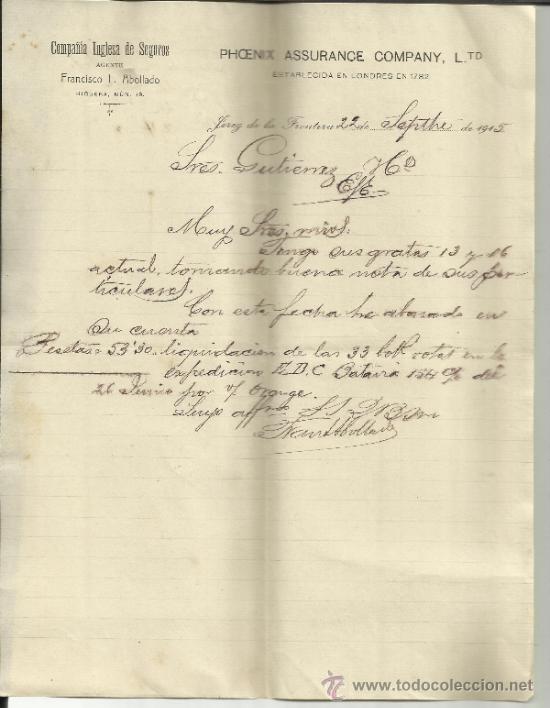 Compañía Inglesa de Seguros
AGENTE
Francisco L. Abollado
HIGUERA, NÚM. 15.
PHŒNIX ASSURANCE COMPANY, L.TD
ESTABLECIDA EN LONDRES EN 1782
Jerez de la Frontera 22 de Septbe de 1915
Sres. Gutierrez Hos
Muy Sres. mios:
Tengo sus gratas 13 y 16
actual, tomando buena nota de sus par-
ticulares.
Con esta fecha he abonado en
su cuenta
Pesetas 53'30 liquidacion de las 33 bot. rotas en la
expedicion Batavia del
26 Junio por v/ Orange.
Suyo affmo
todocoleccion
www.todocoleccion.net